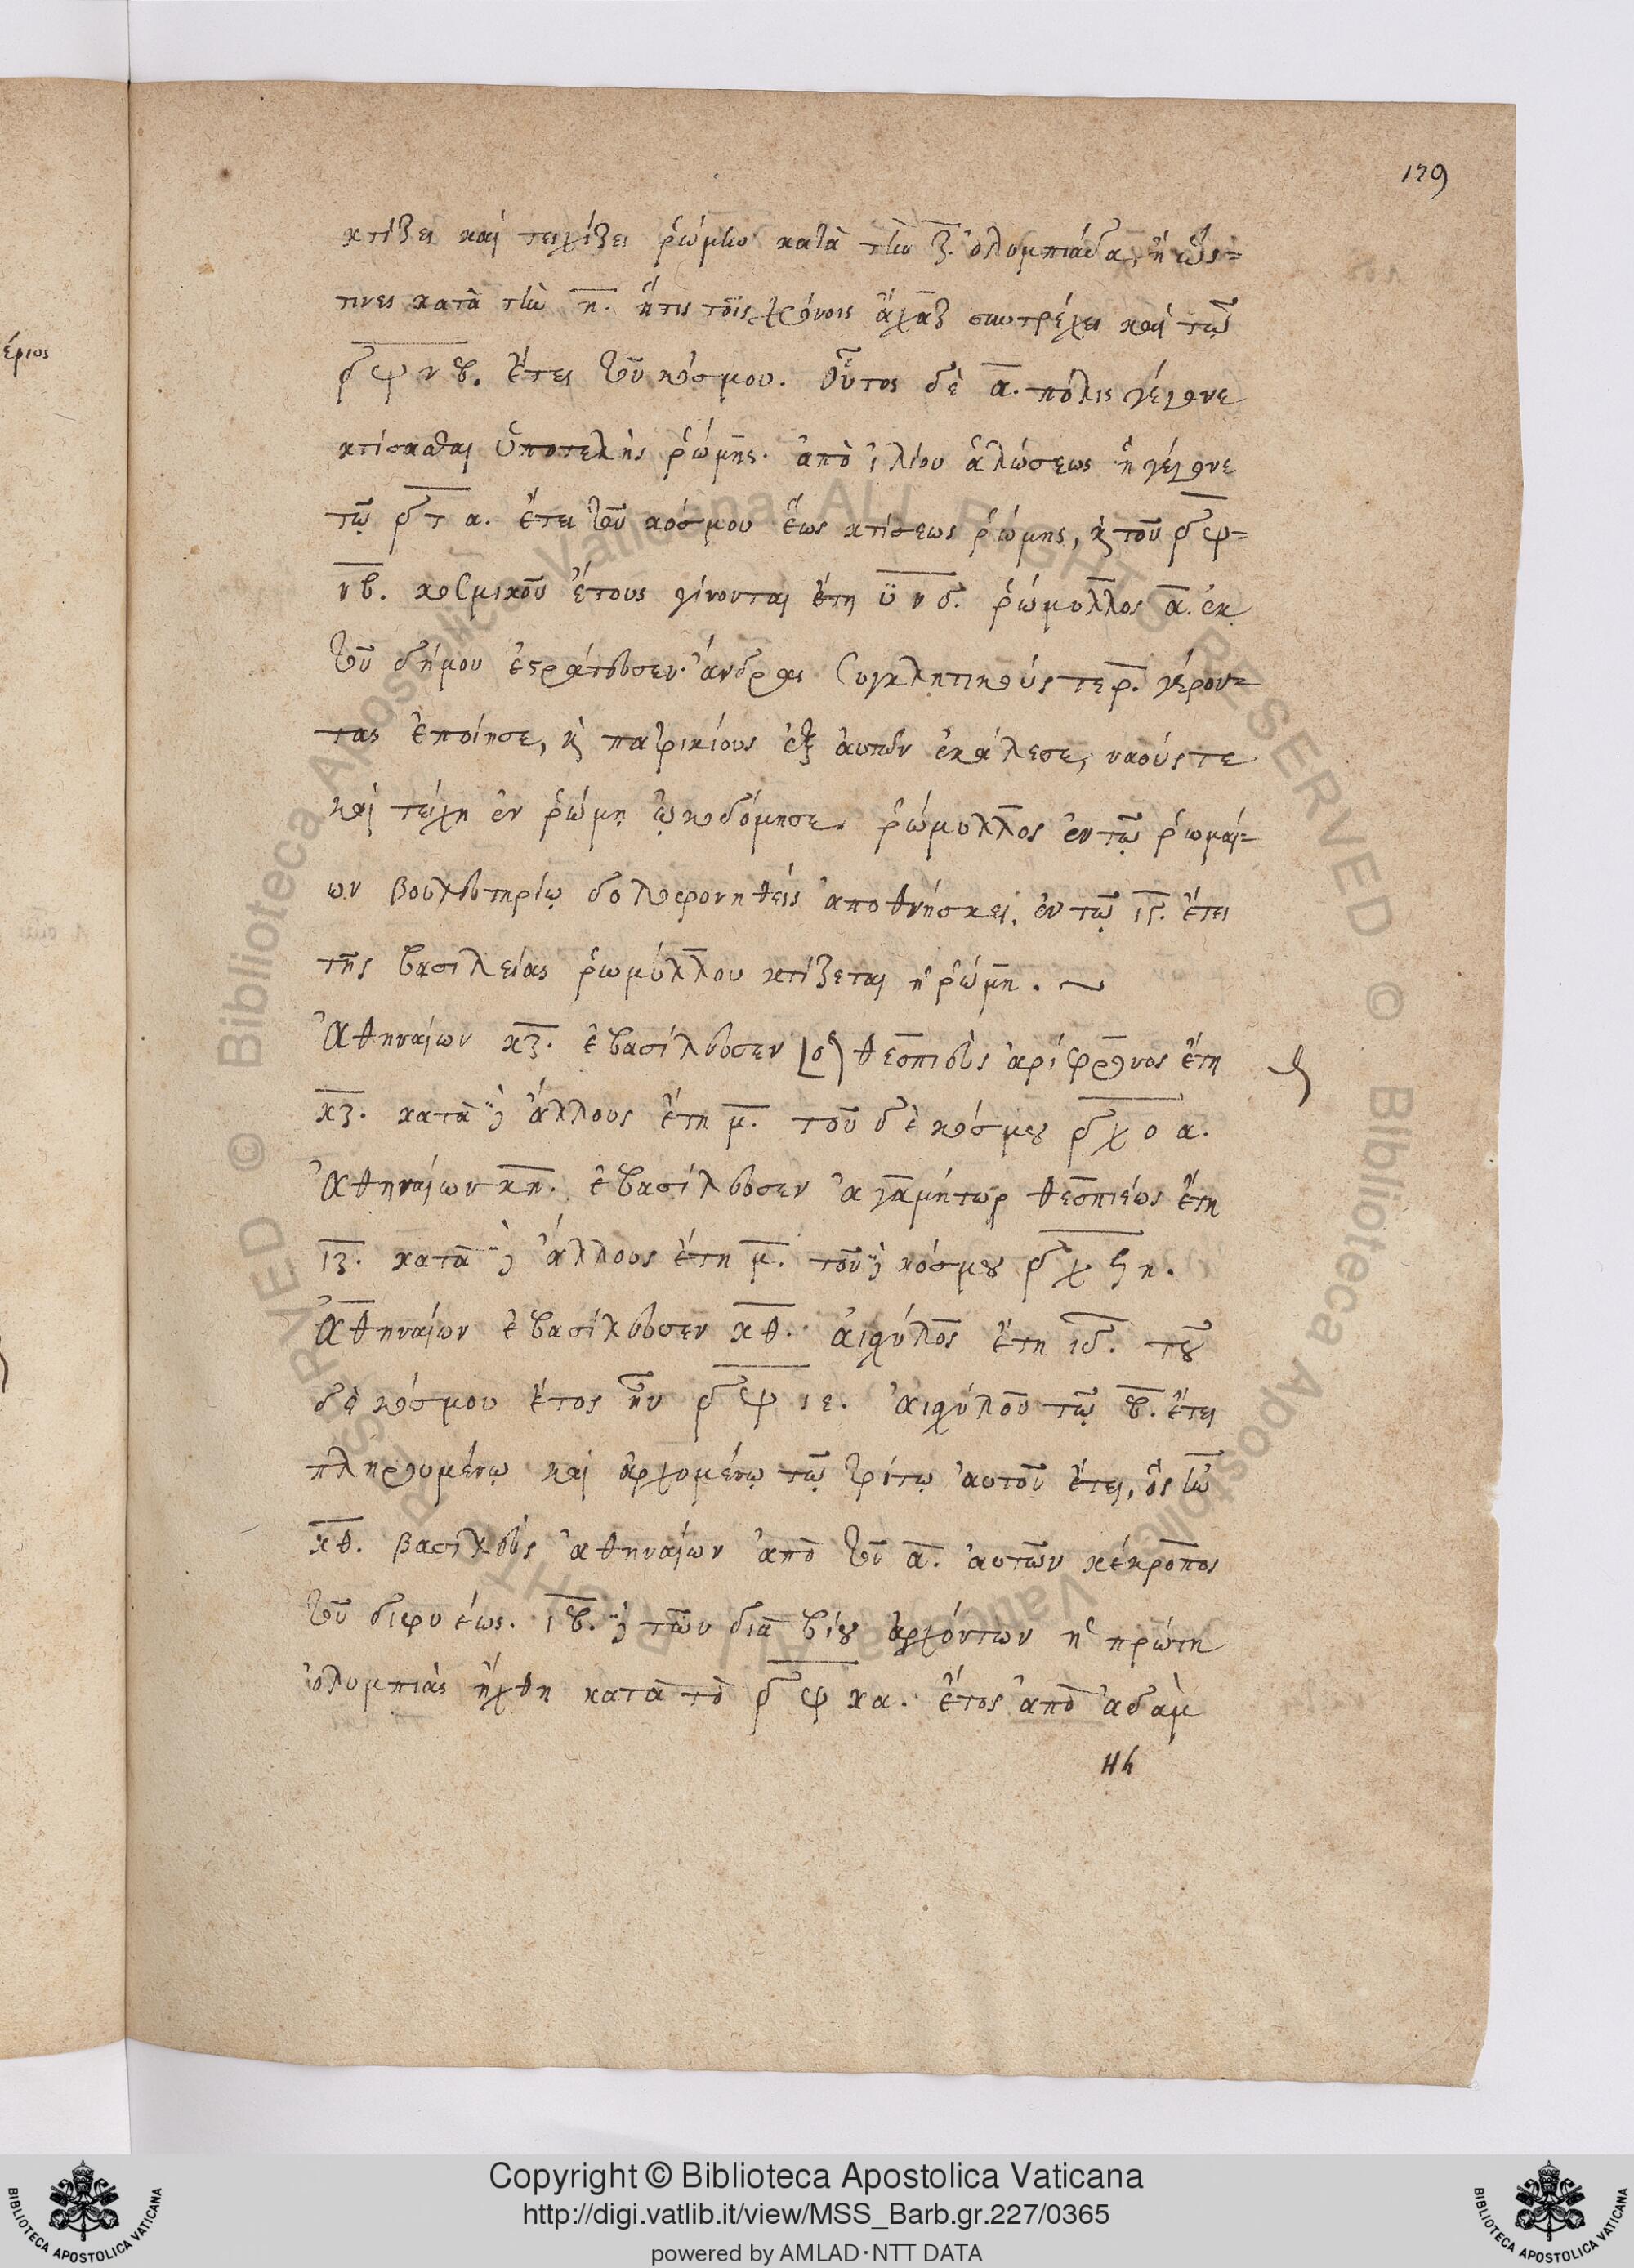 179
κτίζει καὶ τειχίζει ῥώμην κατὰ τὴν ζ. ὀλυμπιάδα, ἢ ὥς=
τινες κατὰ τὴν η. ἥτις τοῖς χρόνοις ἄχαζ συντρέχει καὶ τῷ
͵δψνβ. ἔτει τοῦ κόσμου. οὗτος δὲ α. πόλις γέγονε
κτίσασθαι ὑποτελὴς ῥώμης. ἀπὸ ἰλίου ἁλώσεως ἣ γέγονε
τῷ ͵δτα. ἔτει τοῦ κόσμου ἕως κτίσεως ῥώμης, κ τοῦ ͵δψ=
νβ. κοσμικοῦ ἔτους γίνονται ἔτη υνδ. ῥώμυλλος α. ἐκ
τοῦ δήμου ἐστράτευσεν. ἄνδρας συγκλητικούς τε ρ. γέρον=
τας ἐποίησε, κ πατρικίους ἐξ αυτῶν ἐκάλεσε, ναούς τε
καὶ τείχη ἐν ῥώμῃ ᾠκοδόμησε. ῥώμυλλος ἐν τῷ ῥωμαί=
ων βουλευτηρίῳ δολοφονηθεὶς ἀποθνήσκει. ἐν τῷ ις. ἔτει
τῆς βασιλείας ῥωμύλλου κτίζεται ἡ ῥώμη.
Ἀθηναίων κζ. ἐβασίλευσεν [ὁ] θεσπιεὺς ἀρίφρονος ἔτη
κζ. κατὰ δὲ ἄλλους ἔτη μ. τοῦ δὲ κόσμου ͵δχοα.
Ἀθηναίων κη. ἐβασίλευσεν ἀγαμήτωρ θεσπιέως ἔτη
ιζ. κατὰ δὲ ἄλλους ἔτη μ. τοῦ δὲ κόσμου ͵δχϟη.
Ἀθηναίων ἐβασίλευσεν κθ. αἰσχύλος ἔτη ιδ. τοῦ
δὲ κόσμου ἔτος ἦν ͵δψιε. αἰσχύλου τῷ β. ἔτει
πληρουμένῳ καὶ ἀρχομένῳ τῷ τρίτῳ αὐτοῦ ἔτει, ὃς ἦν
κθ. βασιλεὺς ἀθηναίων ἀπὸ τοῦ α. αὐτῶν κέκροπος
τοῦ διφυέως. ιβ. δὲ τῶν διὰ βίου ἀρχόντων ἡ πρώτη
ὀλυμπιὰς ἤχθη κατὰ τὸ ͵δψκα. ἔτος ἀπὸ ἀδὰμ
έριος
Copyright © Biblioteca Apostolica Vaticana
http://digi.vatlib.it/view/MSS_Barb.gr.227/0365
powered by AMLAD·NTT DATA
BIBLIOTECA APOSTOLICA VATICANA
BIBLIOTECA APOSTOLICA VATICANA